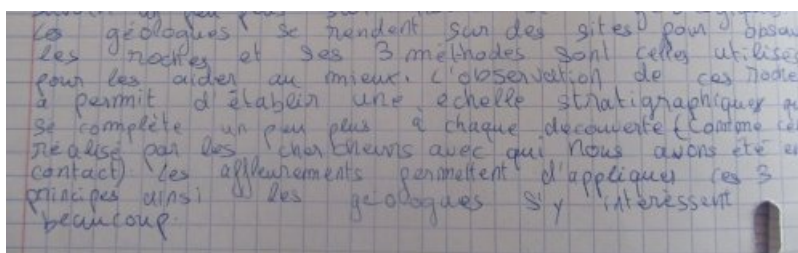 les géologues se rendent sur des sites pour obser
les roches et ses 3 méthodes sont celles utilisées
pour les aider au mieux. L'observation de ces roche
a permit d'établir une echelle stratigraphiques
se complète un peu plus a chaque decouverte (Comme ce
réalisé par les chercheurs avec qui nous avons été e
contact). Les affleurements permettent d'appliquer ces 3
principes ainsi les géologues s'y intéressent
beaucoup.